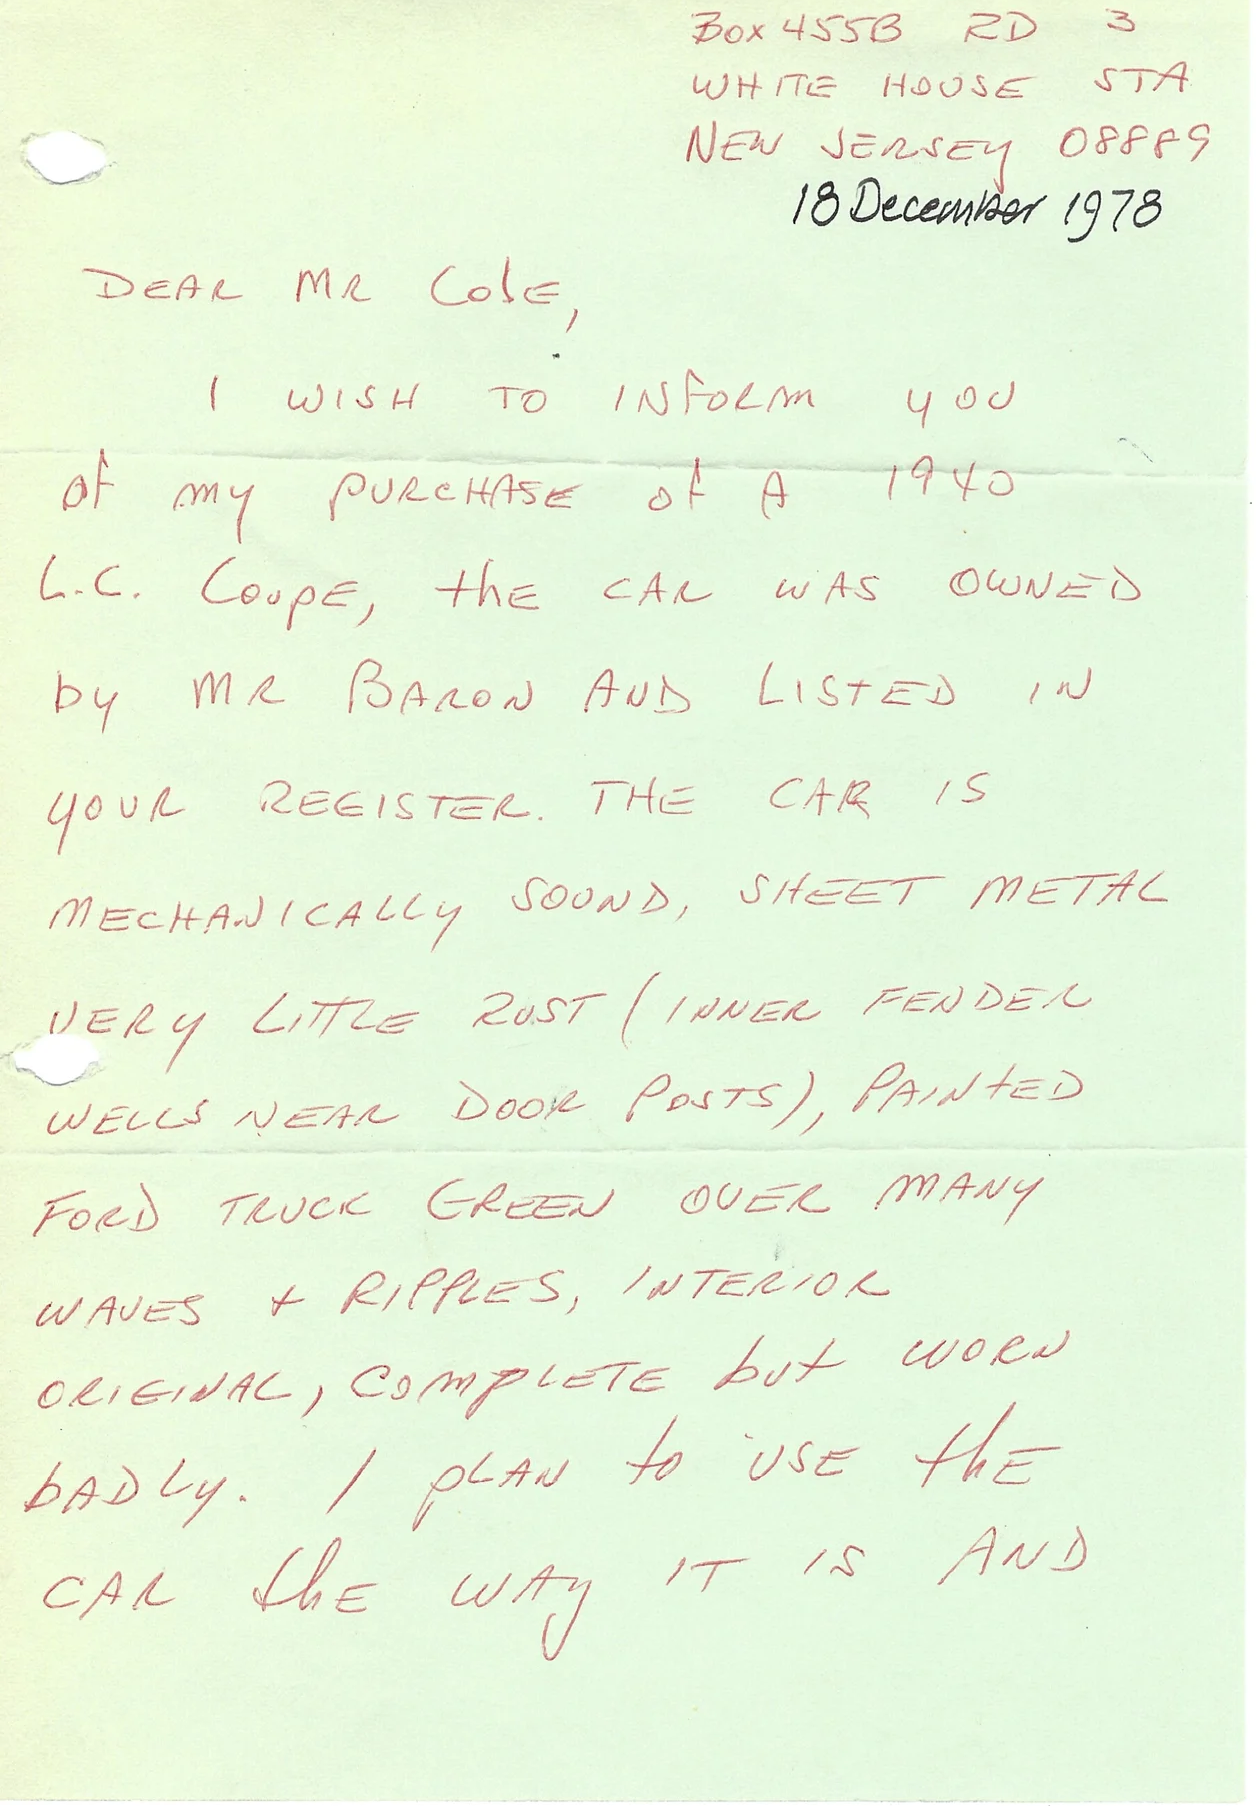 Box 455B RD 3
WHITE HOUSE STA
NEW JERSEY 08889
18 December 1978
DEAR MR Cole,
I WISH TO INFORM YOU
of my PURCHASE of A 1940
L.C. Coupe, the CAR WAS OWNED
by MR BARON AND LISTED IN
YOUR REGISTER. THE CAR IS
MECHANICALLY SOUND, SHEET METAL
VERY LITTLE RUST (INNER FENDER
WELLS NEAR DOOR POSTS), PAINTED
FORD TRUCK GREEN OVER MANY
WAVES + RIPPLES, INTERIOR
ORIGINAL, COMPLETE but WORN
bADLY. I PLAN to USE thE
CAR thE WAY IT IS AND